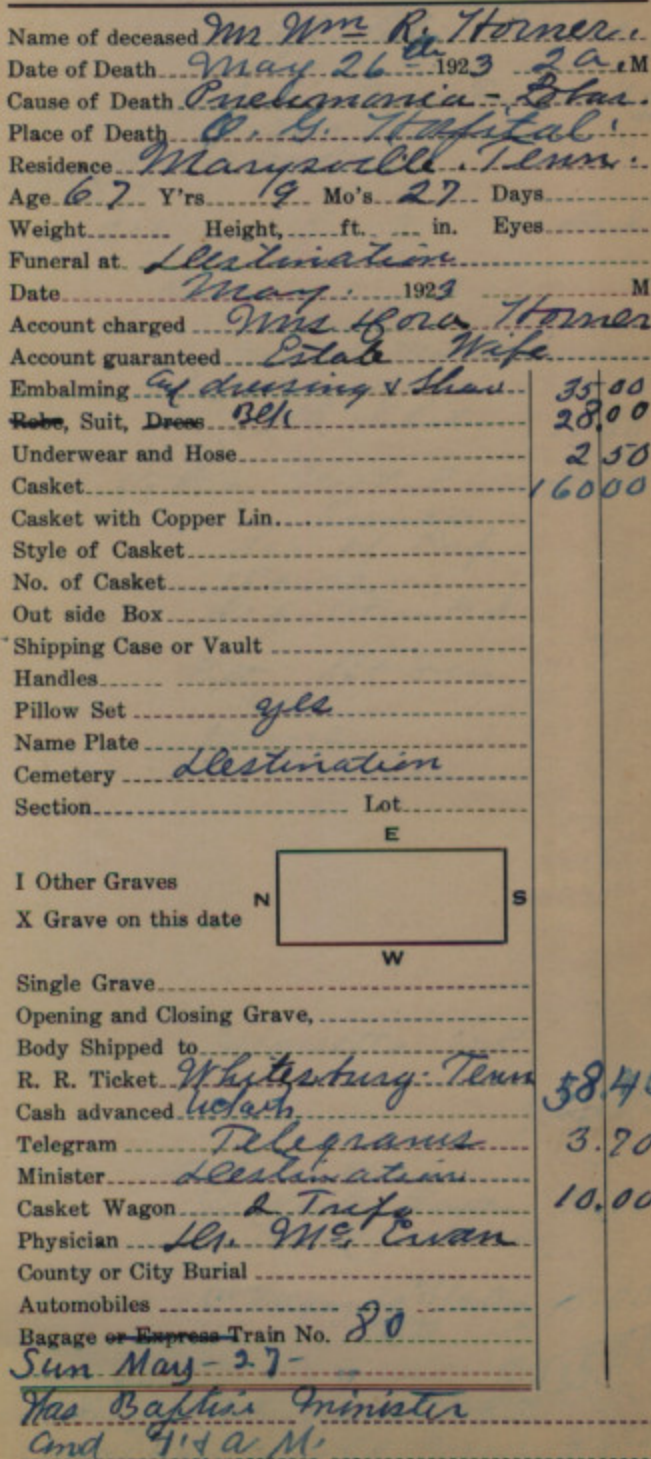 Name of deceased Mr Wm R. Horner.
Date of Death May 26th 1923 2 a. M
Cause of Death Pneumonia -
Place of Death O. G. Hospital.
Residence Marysville. Tenn.
Age 67 Y'rs 9 Mo's 27 Days
Weight Height, ft. in. Eyes
Funeral at Destination
Date May. 1923 M
Account charged Mrs Cora Horner
Account guaranteed Estate Wife
Embalming dressing & Shave 35 00
Robe, Suit, Dress Blk 28.00
Underwear and Hose 2 50
Casket 160 00
Casket with Copper Lin.
Style of Casket
No. of Casket
Out side Box
Shipping Case or Vault
Handles
Pillow Set yes
Name Plate
Cemetery Destination
Section Lot
E
I Other Graves
N S
X Grave on this date
W
Single Grave
Opening and Closing Grave,
Body Shipped to
R. R. Ticket Whitesburg. Tenn 58.4
Cash advanced
Telegram Telegrams 3.70
Minister Destination
Casket Wagon 2 Trips 10.00
Physician Dr. Mc. Ewan
County or City Burial
Automobiles
Bagage or Express Train No. 80
Sun May - 27 -
Was Baptist Minister
and F. & A M.